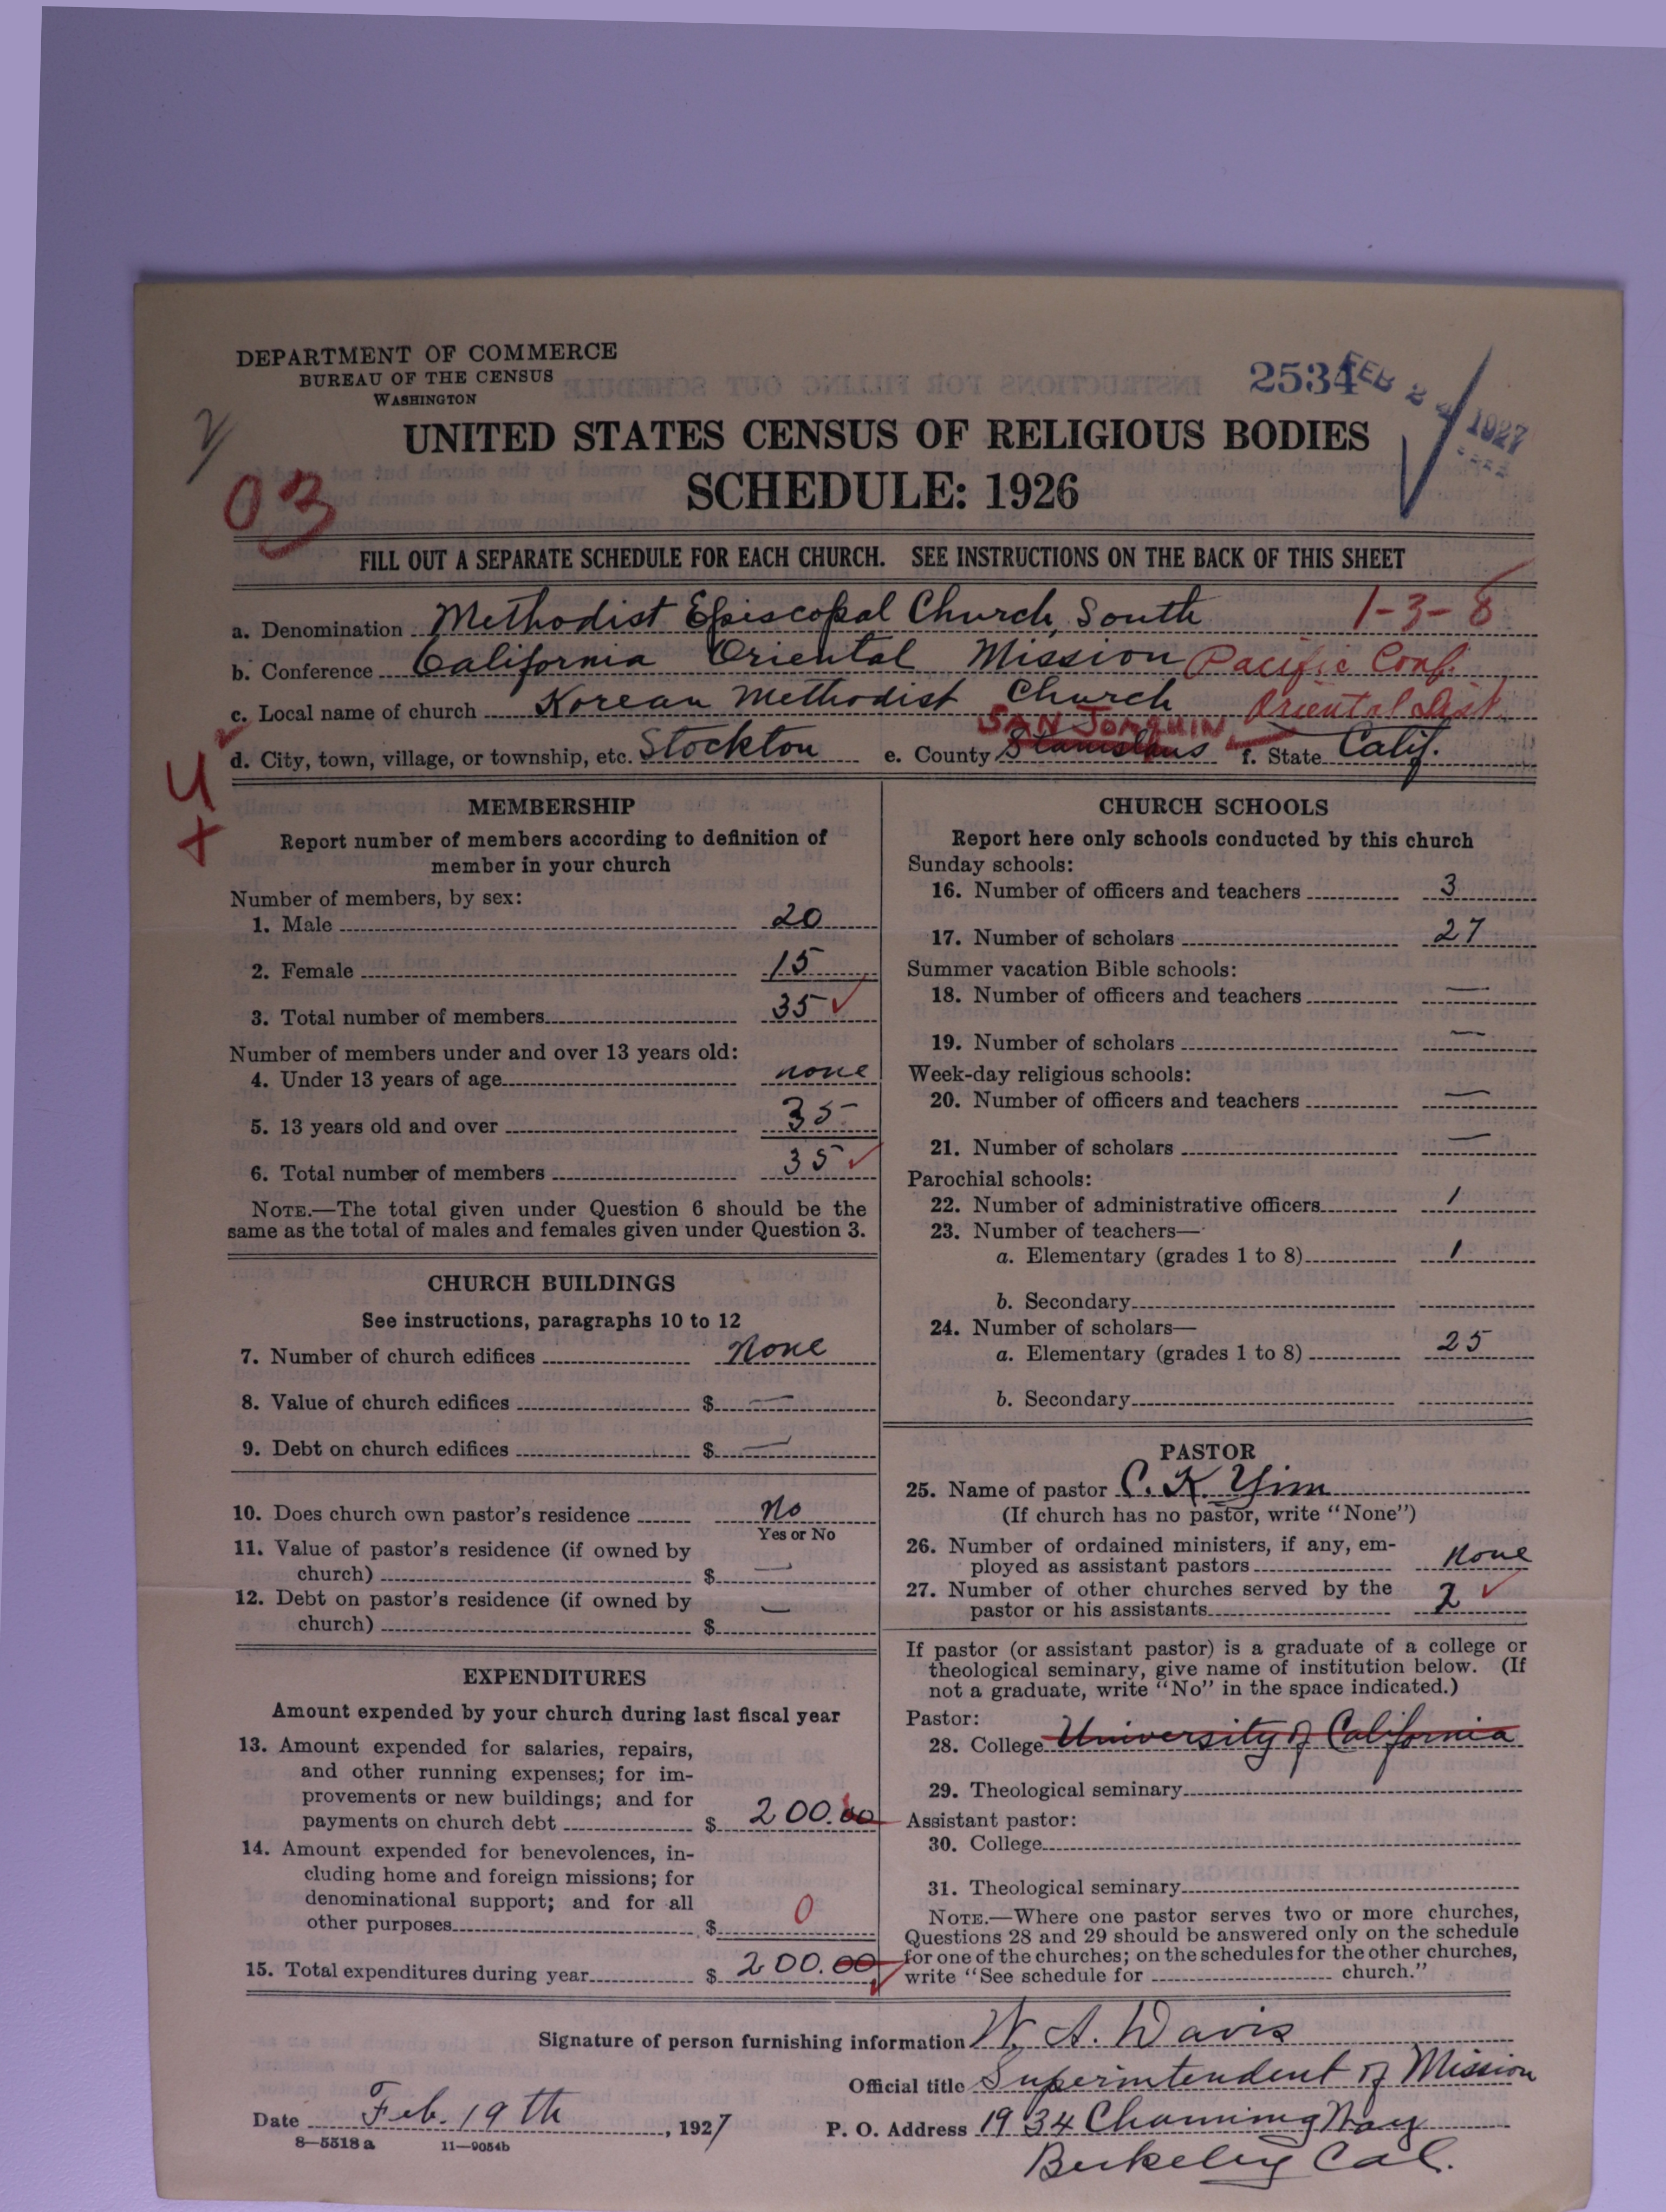 DEPARTMENT OF COMMERCE
BUREAU OF THE CENSUS
WASHINGTON
2534
FEB 2 1927
UNITED STATES CENSUS OF RELIGIOUS BODIES
SCHEDULE: 1926
03
FILL OUT A SEPARATE SCHEDULE FOR EACH CHURCH. SEE INSTRUCTIONS ON THE BACK OF THIS SHEET
a. Denomination Methodist Episcopal Church, South 1-3-8
b. Conference California Oriental Mission Pacific Conf.
c. Local name of church Korean Methodist Church Oriental Dist.
SAN JOAQUIN
d. City, town, village, or township, etc. Stockton e. County Stanislaus f. State Calif.
MEMBERSHIP
Report number of members according to definition of
member in your church
Number of members, by sex:
1. Male 20
2. Female 15
3. Total number of members 35 ✓
Number of members under and over 13 years old:
4. Under 13 years of age none
5. 13 years old and over 35
6. Total number of members 35 ✓
NOTE.—The total given under Question 6 should be the
same as the total of males and females given under Question 3.
CHURCH BUILDINGS
See instructions, paragraphs 10 to 12
7. Number of church edifices None
8. Value of church edifices $ —
9. Debt on church edifices $ —
10. Does church own pastor's residence No
Yes or No
11. Value of pastor's residence (if owned by
church) $ —
12. Debt on pastor's residence (if owned by
church) $ —
EXPENDITURES
Amount expended by your church during last fiscal year
13. Amount expended for salaries, repairs,
and other running expenses; for im-
provements or new buildings; and for
payments on church debt $ 200.00
14. Amount expended for benevolences, in-
cluding home and foreign missions; for
denominational support; and for all
other purposes $ 0
15. Total expenditures during year $ 200.00
CHURCH SCHOOLS
Report here only schools conducted by this church
Sunday schools:
16. Number of officers and teachers 3
17. Number of scholars 27
Summer vacation Bible schools:
18. Number of officers and teachers —
19. Number of scholars —
Week-day religious schools:
20. Number of officers and teachers —
21. Number of scholars —
Parochial schools:
22. Number of administrative officers 1
23. Number of teachers—
a. Elementary (grades 1 to 8) 1
b. Secondary
24. Number of scholars—
a. Elementary (grades 1 to 8) 25
b. Secondary
PASTOR
25. Name of pastor C. K. Yim
(If church has no pastor, write "None")
26. Number of ordained ministers, if any, em-
ployed as assistant pastors None
27. Number of other churches served by the
pastor or his assistants 2 ✓
If pastor (or assistant pastor) is a graduate of a college or
theological seminary, give name of institution below. (If
not a graduate, write "No" in the space indicated.)
Pastor:
28. College University of California
29. Theological seminary
Assistant pastor:
30. College
31. Theological seminary
NOTE.—Where one pastor serves two or more churches,
Questions 28 and 29 should be answered only on the schedule
for one of the churches; on the schedules for the other churches,
write "See schedule for church."
Signature of person furnishing information W. A. Davis
Official title Superintendent of Mission
Date Feb. 19th, 1927 P. O. Address 1934 Channing Way
8—5518 a 11—9054b
Berkeley Cal.